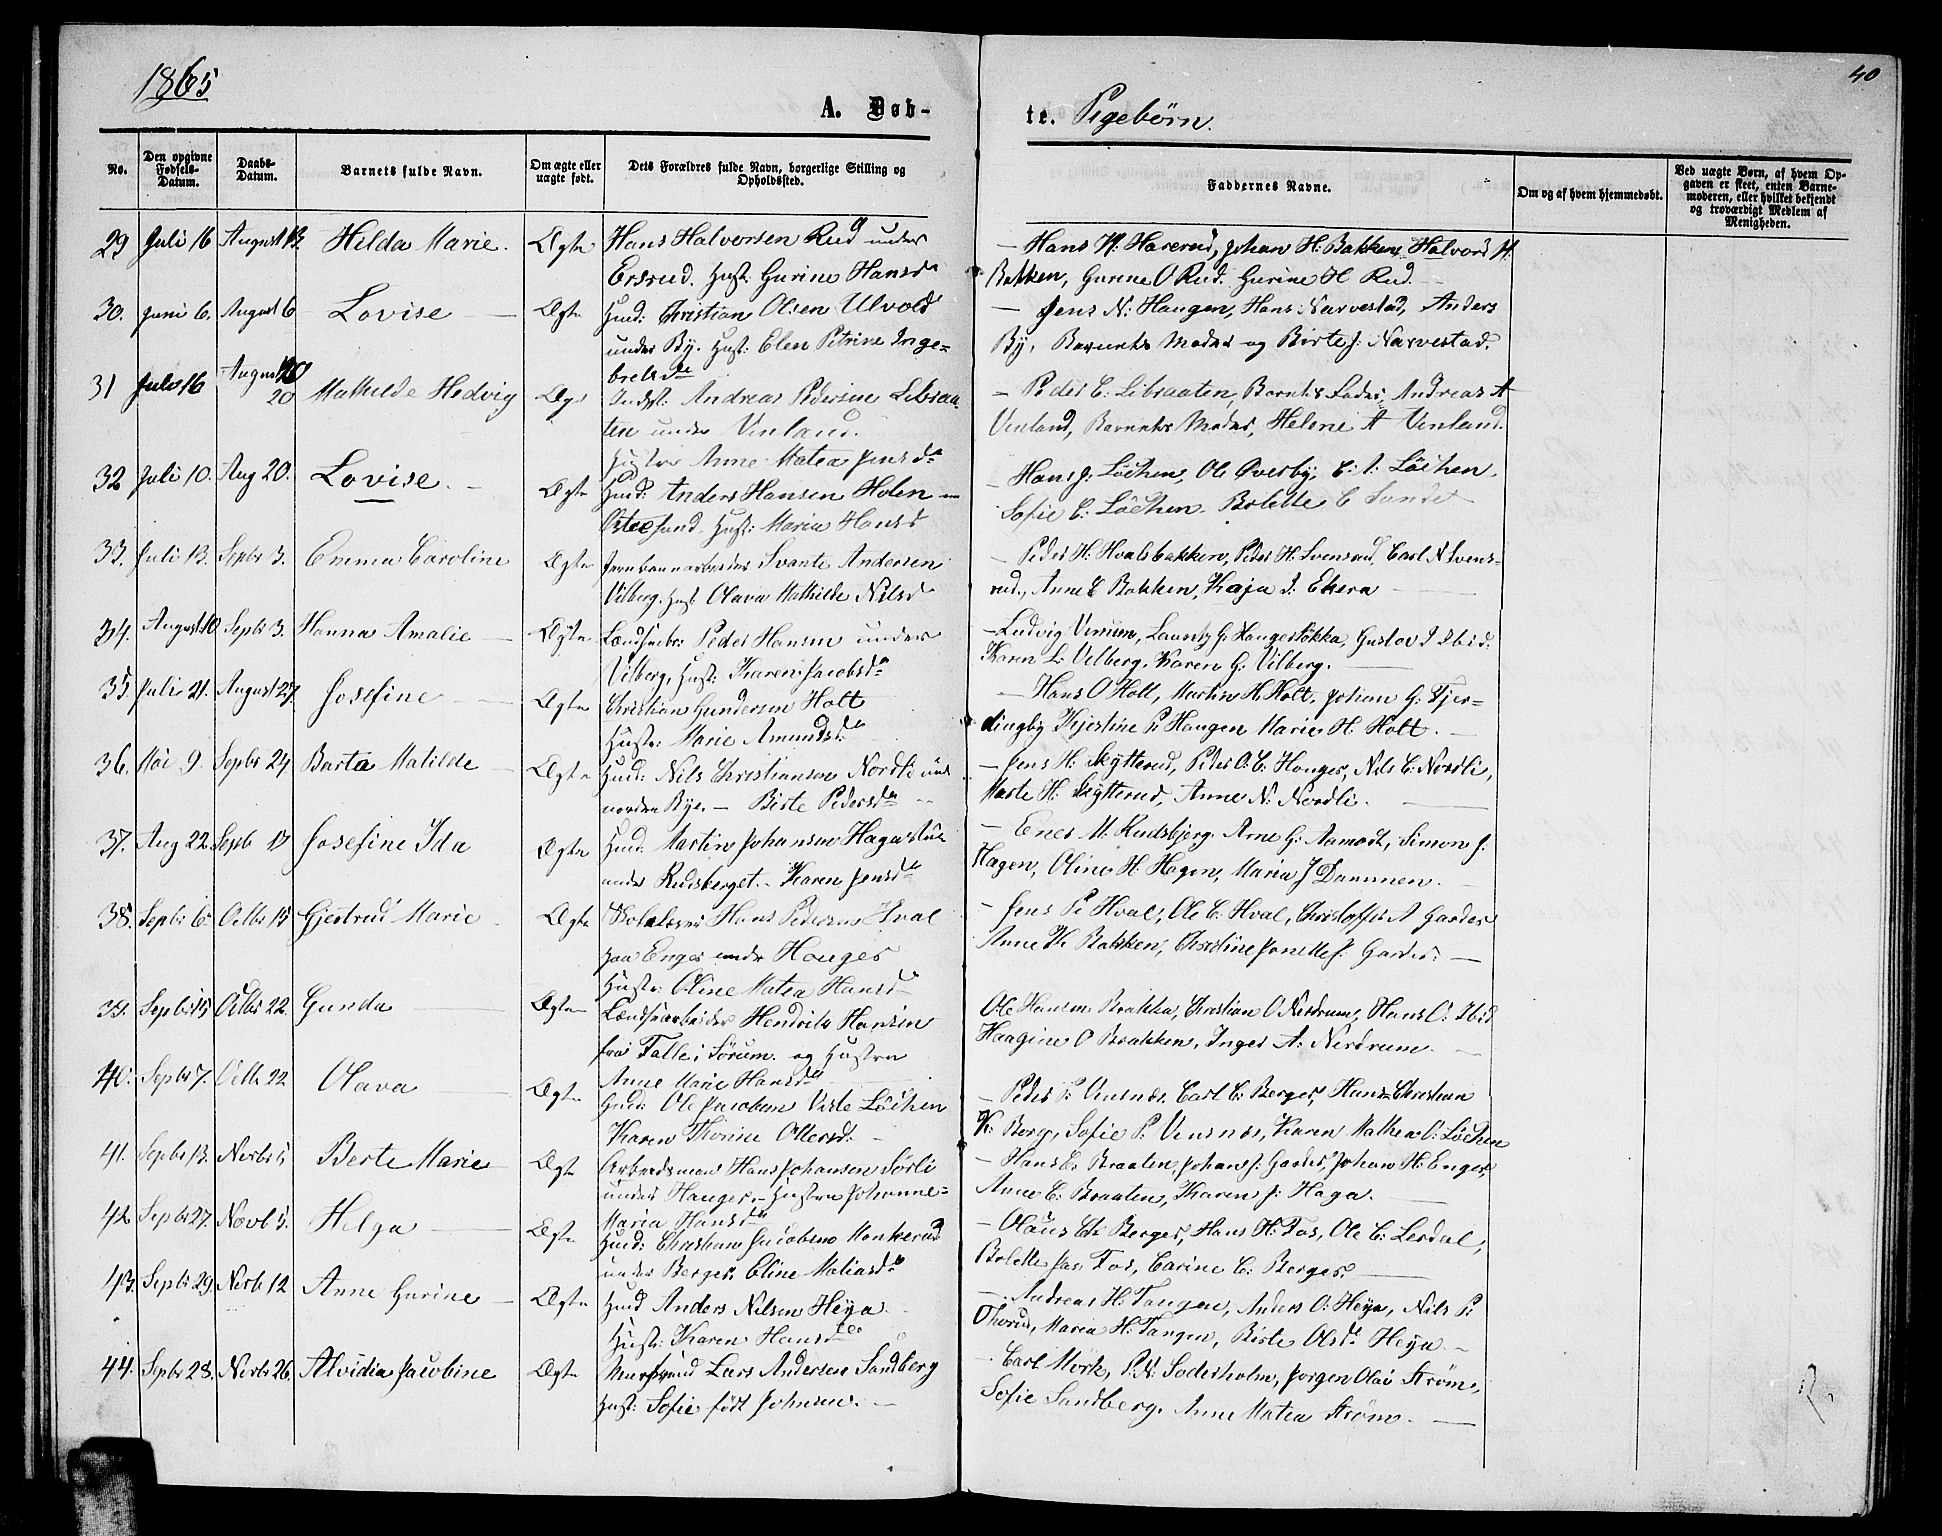 1865
40
A. Døb-
te. Pigebørn.
No.
Den opgivne Fødsels-Datum.
Daabs-Datum.
Barnets fulde Navn.
Om ægte eller uægte født.
Dets Forældres fulde Navn, borgerlige Stilling og Opholdssted.
Faddernes Navne.
Om og af hvem hjemmedøbt.
Ved uægte Børn, af hvem Opgaven er skeet, enten Barnemoderen, eller hvilket bekjendt og troværdigt Medlem af Menigheden.
29 Juli 16 August 13. Hilda Marie. Ægte Hans Halvorsen Rud under
Ersrud. Hust: Gurine Hansd
— Hans H: Harerud, Johan H: Bakken, Halvord H.
Bakken, Gurine O Rud. Gurine H Rud.
30. Juni 6. August 6 Lovise — Ægte Husd: Christian Olsen Ulvold
under By. Hust: Elen Petrine Inge=
bretsd
— Jens N: Haugen, Hans Narvestad, Anders
By, Barnets Moder og Birte J: Narvestad.
31 Juli 16 August 20 Mathilde Hedvig Æg Indst: Andreas Pedersen Libraa-
ten under Vinland.
Hustru Anne Matea Jensd
— Peder C. Libraaten, Barnets Fader, Andreas A
Vinland, Barnets Moder, Helene A Vinland.
32 Juli 10. Aug 20. Lovise. — Ægte Husd: Anders Hansen Holen
Hust: Maria Hansd
— Hans J: Löchen, Ole Overby, Löchen.
Sofie C: Löchen. Bolette C Sundet
33. Juli 13. Septbr 3. Emma Caroline Ægte Jernbanearbeider Svante Andersen
Vilberg. Hust Olava Mathilde Nilsd
— Peder H: Hvalsbakken, Peder H. Svensrud, Carl N Svens-
rud, Anne C Bakken, Kaja J. Ekern
34. August 10 Septbr 3. Hanna Amalie — Ægte Peder Hansen under
Vilberg, Hust: Karen Jacobsd
— Ludvig Lauritz G: Haugerløkka, Gustav J Ibid.
Karen L: Vilberg. Karen G: Vilberg.
35 Juli 21. August 27. Josefine — Ægte Christian Gundersen Holt
Hustr: Marie Amundsd:
— Hans O Holt, Martin H. Holt. Johan G: Tjer=
dingby Kjerstine P: Haugen Marie H: Holt.
36. Mai 9. Septbr 24 Barta Matilde — Ægte Husd: Nils Christiansen Nordli
nordre Bye. — Birte Pedersd
— Jens H: Skytterud, Peder O: C: Hauger, Nils C: Nordli,
Marte H: Skytterud, Anne N: Nordli.
37. Aug 22. Septb 17 Josefine Ida Ægte Husd: Martin Johansen Hagastue
under Rudsberget. Karen Jensd
— Enes M. Rudsbjerg. Arne G: Aamodt, Simon J:
Hagen, Oline H: Hagen, Maria J Dammen.
38. Septbr 6 Octbr 15 Gjertrud Marie Ægte Skolelærer Hans Pedersen Hval
paa Enger under Hauger
Hustr: Oline Matea Hansd
— Jens P: Hval, Ole C: Hval, Christoffer A Garder
Anne K Bakken, Christine Janette J: Garder.
39. Septbr 15 Octbr 22. Gunda — Ægte Hendrik Hansen
fra Falle i Sörum. og Hustru
Anne Marie Hansd
Ole Hansen Brakka, Christian O Nerdrum, Hans C: Ibid
Haagine O Brakken, Inger A: Nerdrum.
40. Septbr 7. Octb 22 Olava — Ægte Husd: Ole Jacobsen Löchen
Karen Thorine Ottersd.
— Peder P: Vensnæs, Carl C: Berger, Hans Christian
K: Berg, Sofie P: Vensnæs, Karen Mathea O: Löchen
41. Septbr 13. Novbr 5 Berte Marie Ægt Arbeidsmand Hans Johansen Sörli
under Hauger. — Hustru Johanne=
Maria Hansd
— Hans C: Braaten, Johan J: Garder, Johan H: Enger,
Anne C: Braaten, Karen J: Haga.
42 Septbr 27. Novb 5. Helga — Ægt Husd: Christian Jacobsen Monkerud
under Berger. Eline Matiasd
— Olaus Ch: Berger, Hans H: Fos, Ole C: Lerdal,
Bolette Fos, Carine C: Berger.
43. Septbr 29. Novb 12 Anne Gurine — Ægte Husd Anders Nilsen Heya
Hust: Karen Hansd
— Andreas H: Tangen, Anders O: Heya, Nils P:
Thorud, Maria H: Tangen, Birte Olsd Heya —
44. Septbr 28. Novbr 26. Alvidia Jacobine Ægte Lars Andersen Sandberg
Hust: Sofie født Johnsen. —
Carl Mörk, P. N: Söderholm, Jörgen Olai Ström,
Sofie Sandberg. Anne Matea Ström.